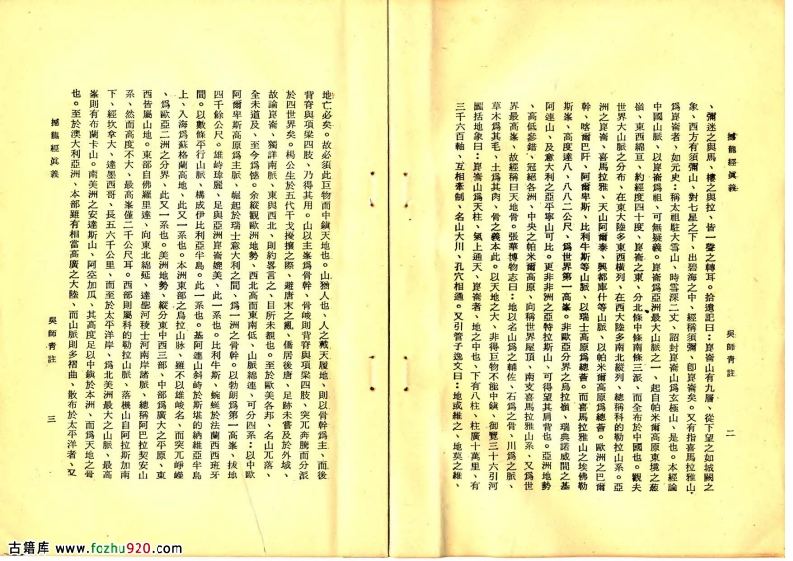 撼龍經真義
吳師青註
二
、彌迷之與馬、樓之與拉、皆一聲之轉耳。拾遺記曰、崑崙山有九層、從下望之如城闕之
象、西方有須彌山、對七星之下、出碧海之中、經稱須彌、卽崑崙矣。又有指喜馬拉雅山
爲崑崙者、如元史：稱太祖駐大雪山、時雪深二丈、詔封崑崙山爲玄極山、是也。本經論
中國山脈、以崑崙爲祖、可無疑義。崑崙爲亞洲最大山脈之一、起自帕米爾高原東境之葱
嶺、東西綿亘、約經度四十度、崑崙之東、分北條中條南條三派、而全布於中國也。觀夫
世界大山脈之分布、在東大陸多東西橫列、在西大陸多南北縱列、總稱科的勒拉山系。亞
洲之崑崙、喜馬拉雅、天山阿爾泰、興都庫什等山脈、以帕米爾高原爲總薈。歐洲之巴爾
幹、喀爾巴阡、阿爾卑斯、比利牛斯等山脈、以瑞士高原爲總薈。而喜馬拉雅山之埃佛勒
斯峯、高度達八、八八二公尺、爲世界第一高峯。非歐亞分界之烏拉嶺、瑞典諾威間之基
阿連山、及意大利之亞平寧山可比。更非非洲之亞特拉斯山、可得望其肩背也。亞洲地勢
、高低參錯、冠絕各洲、中央之帕米爾高原、向稱世界屋頂、南支喜馬拉雅山系、又爲世
界最高峯、故經稱曰天地骨。張華博物志曰：地以名山爲之輔佐、石爲之骨、川爲之脈、
草木爲其毛、土爲其肉、骨之義本此。以天地之大、非得巨物不能中鎭、御覽三十六引河
圖括地象曰：崑崙山爲天柱、氣上通天、崑崙者、地之中也、下有八柱、柱廣十萬里、有
三千六百軸、互相牽制、名山大川、孔穴相通。又引管子逸文曰：地或維之、地莫之維、
地亡必矣。故必須此巨物而中鎭天地也。山猶人也、人之戴天履地、則以骨幹爲主、而後
背脊與項梁四肢、乃得其用。山以主峯爲骨幹、骨峻則背脊與項梁四肢、突兀奔騰而分派
於四世界矣。楊公生於五代干戈擾攘之際、避唐末之亂、僑居後唐、足跡未嘗及於外域、
故論崑崙、獨詳南脈、東與西北、則約畧言之、目所未覩也。至於歐美各邦、名山兀落、
全未道及、至今爲憾。余縱觀歐洲地勢、西北高而東南低、山脈綿連、可分四系：以中歐
阿爾卑斯高原爲主脈、崛起於瑞士意大利之間、爲一洲之骨幹。以勃朗爲第一高峯、拔地
四千餘公尺。雄峙瑋麗、足與亞洲崑崙媲美、此一系也。比利牛斯、蜿蜒於法蘭西西班牙
間。以數條平行山脈、構成伊比利亞半島。此一系也。基阿連山斜峙於斯堪的納維亞半島
上、入海爲蘇格蘭高地、此又一系也。本洲東部之烏拉山脈、雖不以雄峻名、而突兀崢嶸
、爲歐亞二洲之分界、此又一系也。美洲地勢、縱分東中西三部、中部爲廣大之平原、東
西皆屬山地。東部自佛羅里達、向東北綿延、達墨河稜士河南岸諸脈、總稱阿巴拉契安山
系、然而高度不大、最高峯僅二千公尺耳。西部則屬科的勒拉山脈、落機山自阿拉斯加南
下、經坎拿大、達墨西哥、長五六千公里、而至於太平洋岸、爲北美洲最大之山脈、最高
峯則有布蘭卡山。南美洲之安達斯山、阿空加瓜、其高度足以中鎭於本洲、而爲天地之骨
也。至於澳大利亞洲、本部雖有相當高廣之大陸、而山脈則多褶曲、散布於太平洋者、又
撼龍經真義
吳師青註
三
古籍库 www.fozhu920.com